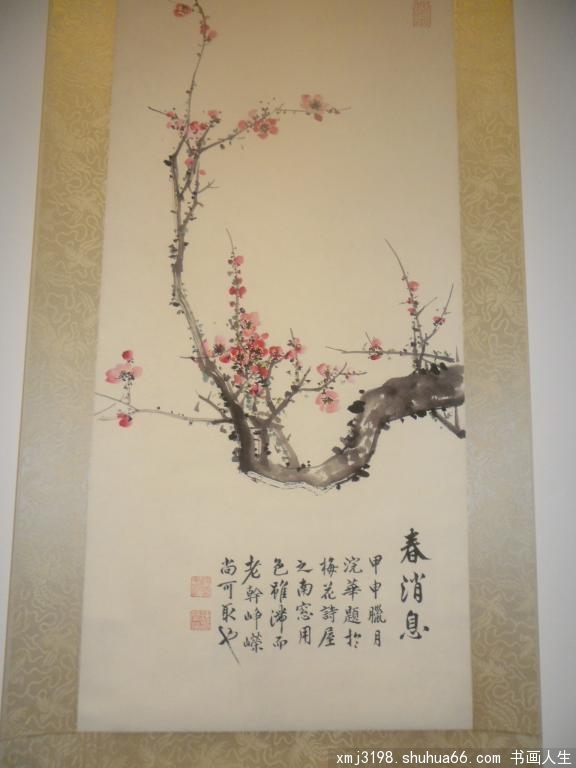 春消息
甲申臘月
浣華題於
梅花詩屋
之南窓用
色雖滯而
老幹崢嶸
尚可取也
xmj3198.shuhua66.com 书画人生